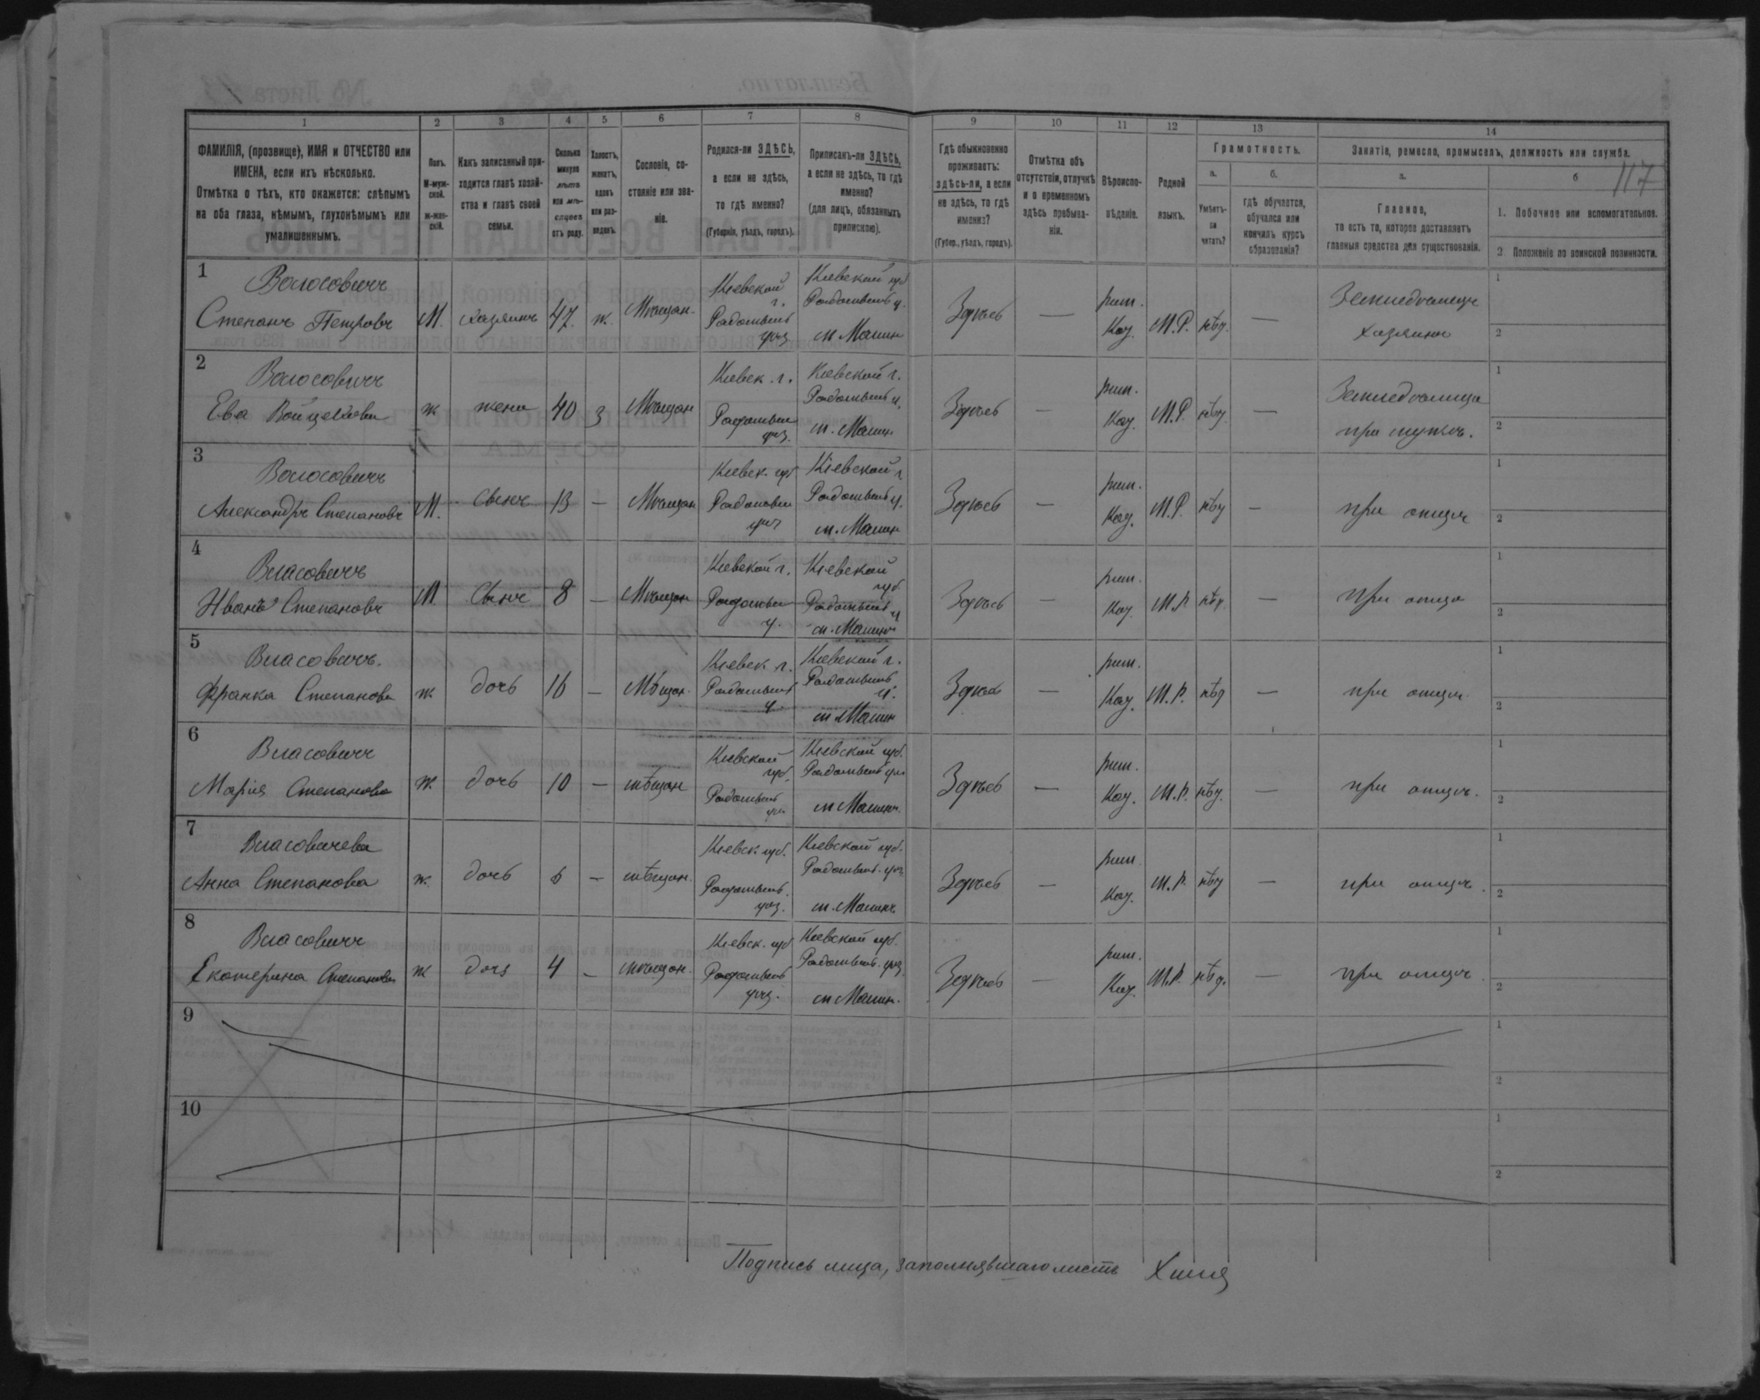 117
1 2 3 4 5 6 7 8 9 10 11 12 13 14
ФАМИЛІЯ, (прозвище), ИМЯ и ОТЧЕСТВО или ИМЕНА, если ихъ нѣсколько.
Отмѣтка о тѣхъ, кто окажется: слѣпымъ на оба глаза, нѣмымъ, глухонѣмымъ или умалишеннымъ.
Полъ.
М-муж-
ской.
ж-жен-
скій.
Какъ записанный при-
ходится главѣ хозяй-
ства и главѣ своей
семьи.
Сколько
минуло
лѣтъ
или мѣ-
сяцевъ
отъ роду.
Холостъ,
женатъ,
вдовъ
или раз-
веденъ.
Сословіе, со-
стояніе или зва-
ніе.
Родился-ли ЗДѢСЬ,
а если не здѣсь,
то гдѣ именно?
(Губернія, уѣздъ, городъ).
Приписанъ-ли ЗДѢСЬ,
а если не здѣсь, то гдѣ
именно?
(для лицъ, обязанныхъ
припискою).
Гдѣ обыкновенно
проживаетъ:
здѣсь-ли, а если
не здѣсь, то гдѣ
именно?
(Губер., уѣздъ, городъ).
Отмѣтка объ
отсутствіи, отлучкѣ
и о временномъ
здѣсь пребыва-
ніи.
Вѣроиспо-
вѣданіе.
Родной
языкъ.
Грамотность.
а.
Умѣетъ-
ли
читать?
б.
гдѣ обучается,
обучался или
кончилъ курсъ
образованія?
Занятіе, ремесло, промыселъ, должность или служба.
а.
Главное,
то есть то, которое доставляетъ
главныя средства для существованія.
б
1. Побочное или вспомогательное.
2 Положеніе по воинской повинности.
1 Волосовичъ Кіевской г. Кіевской губ рим. Земледѣлецъ 1
Степанъ Петровъ М. хозяинъ 47 ж. Мѣщан. Радомысл уѣз. Радомысл у. м. Малинъ Здѣсь — Кат. М.Р. нѣт. — хозяинъ 2
2 Волосовичъ Кіевск. г. Кіевской г. рим. Земледѣлица 1
Ева Войцехова ж жена 40 з Мѣщан Радомысл уѣз. Радомысл у. м. Малин. Здѣсь — Кат. М.Р. нѣт. — при мужѣ. 2
3 Волосовичъ Кіевск. губ Кіевской г рим. 1
Александръ Степановъ М. сынъ 13 — Мѣщан Радомысл уѣз Радомысл у. м. Малин Здѣсь — Кат. М.Р. нѣт — при отцѣ 2
4 Власовичъ Кіевской г. Кіевской губ. рим. 1
Иванъ Степановъ М сынъ 8 — Мѣщан Радомысл у. Радомысл у м. Малинъ Здѣсь — Кат. М.Р. нѣт. — при отцѣ 2
5 Власовичъ. Кіевск. г. Кіевской г. рим. 1
Франка Степанова ж дочь 16 — Мѣщан. Радомысл у Радомысл у. м Малин Здѣсь — Кат. М.Р. нѣт — при отцѣ. 2
6 Власовичъ Кіевской губ. Кіевской губ. рим. 1
Марія Степанова ж. дочь 10 — мѣщан Радомысл уѣз. Радомысл уѣз м Малинъ. Здѣсь — Кат. М.Р. нѣт. — при отцѣ. 2
7 Власовичева Кіевск губ. Кіевской губ. рим. 1
Анна Степанова ж. дочь 6 — мѣщан. Радомысл. уѣз. Радомысл. уѣз м. Малинъ Здѣсь — Кат. М.Р. нѣт — при отцѣ. 2
8 Власовичъ Кіевск. губ Кіевской губ. рим. 1
Екатерина Степанова ж дочь 4 — мѣщан. Радомысл уѣз. Радомысл. уѣз м Малин. Здѣсь — Кат. М.Р. нѣт. — при отцѣ. 2
9 1
2
10 1
2
Подпись лица, заполнявшаго листъ